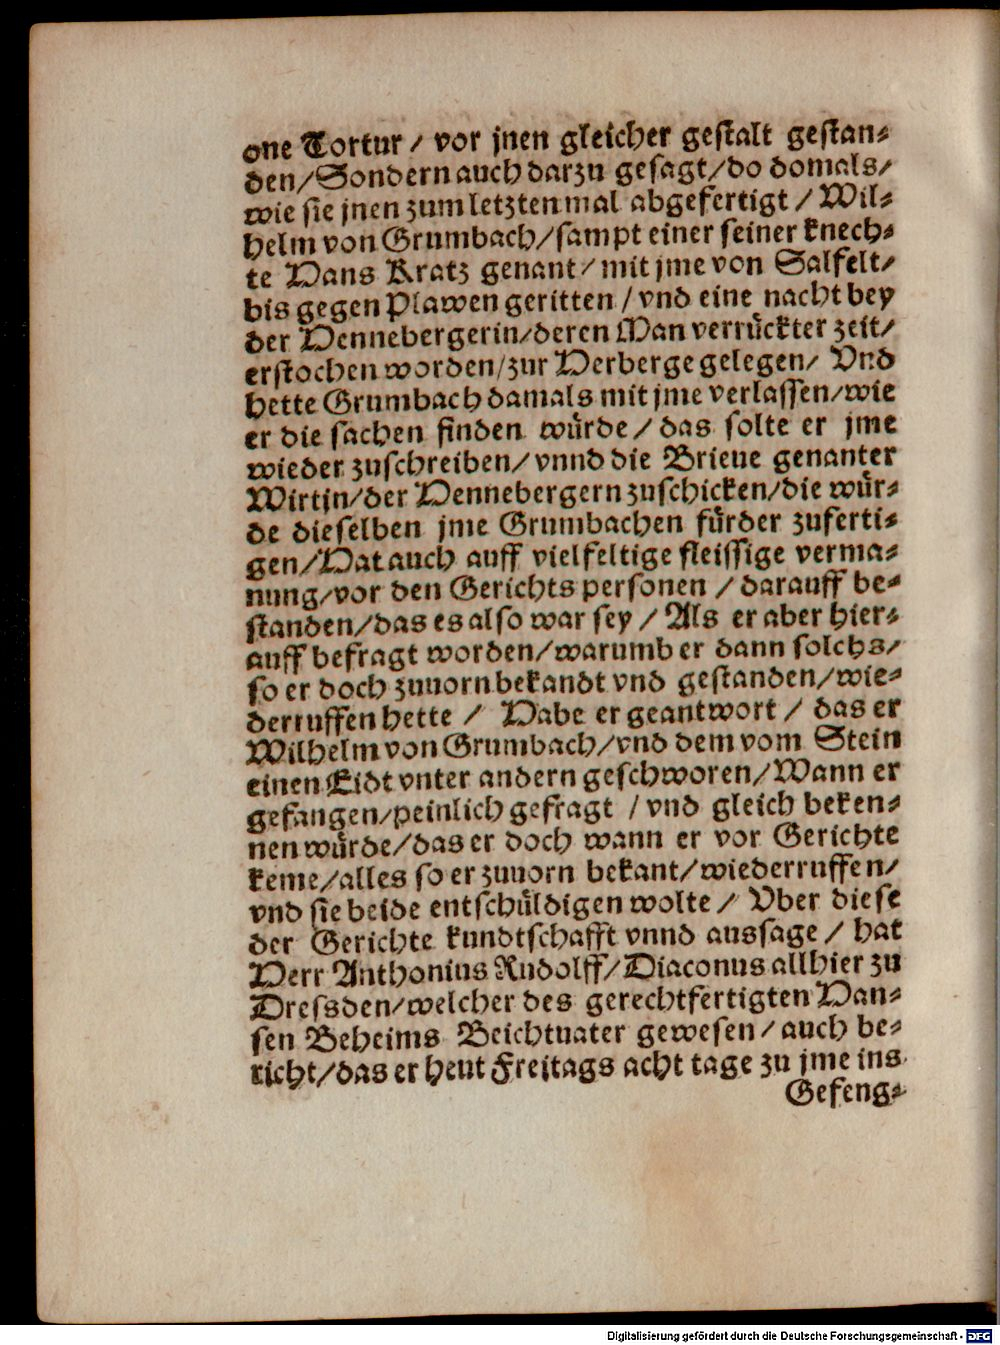 one Tortur / vor jnen gleicher gestalt gestan-
den/Sondern auch darzu gesagt/do domals/
wie sie jnen zum letzten mal abgefertigt / Wil-
helm von Grumbach/sampt einer seiner knech-
te Hans Kratz genant/ mit jme von Salfelt/
bis gegen Plawen geritten / vnd eine nacht bey
der Hennebergerin/deren Man verrückter zeit/
erstochen worden/zur Herberge gelegen/ Vnd
hette Grumbach damals mit jme verlassen/wie
er die sachen finden würde / das solte er jme
wieder zuschreiben/ vnnd die Brieue genanter
Wirtjn/der Hennebergern zuschicken/die wür-
de dieselben jme Grumbachen fürder zuferti-
gen/Hat auch auff vielfeltige fleissige verma-
nung/vor den Gerichts personen / darauff be-
standen/das es also war sey / Als er aber hier-
auff befragt worden/warumb er dann solchs/
so er doch zuuorn bekandt vnd gestanden/wie-
derruffen hette / Habe er geantwort / das er
Wilhelm von Grumbach/vnd dem vom Stein
einen Eidt vnter andern geschworen/Wann er
gefangen/peinlich gefragt / vnd gleich beken-
nen würde/das er doch wann er vor Gerichte
keme/alles so er zuuorn bekant/wiederruffen/
vnd sie beide entschüldigen wolte / Vber diese
der Gerichte kundtschafft vnnd aussage / hat
Herr Anthonius Rudolff/Diaconus allhier zu
Dressden/welcher des gerechtfertigten Han-
sen Beheims Beichtuater gewesen/ auch be-
richt/das er heut Freitags acht tage zu jme ins
Gefeng-
Digitalisierung gefördert durch die Deutsche Forschungsgemeinschaft - DFG